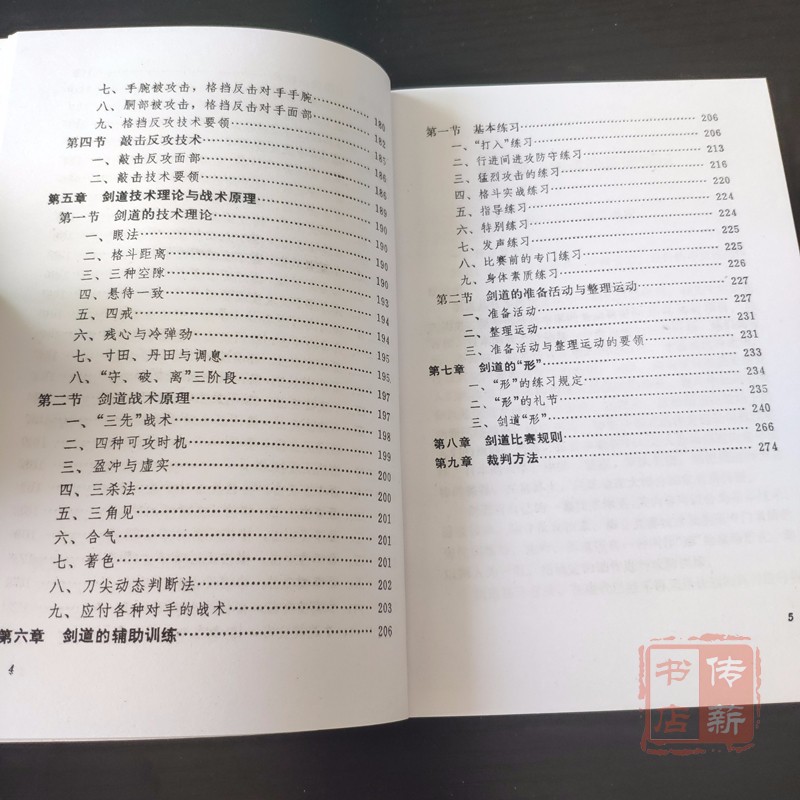 七、手腕被攻击，格挡反击对手手腕……180
八、胴部被攻击，格挡反击对手面部……182
九、格挡反攻技术要领……185
第四节 敲击反攻技术……186
一、敲击反攻面部……186
二、敲击技术要领……189
第五章 剑道技术理论与战术原理……190
第一节 剑道的技术理论……190
一、眼法……190
二、格斗距离……190
三、三种空隙……193
四、悬侍一致……194
五、四戒……194
六、残心与冷弹劲……195
七、寸田、丹田与调息……195
八、“守、破、离”三阶段……197
第二节 剑道战术原理……197
一、“三先”战术……198
二、四种可攻时机……199
三、盈冲与虚实……200
四、三杀法……200
五、三角见……201
六、合气……201
七、著色……201
八、刀尖动态判断法……202
九、应付各种对手的战术……203
第六章 剑道的辅助训练……206
4
第一节 基本练习……206
一、“打入”练习……206
二、行进间进攻防守练习……213
三、猛烈攻击的练习……216
四、格斗实战练习……220
五、指导练习……224
六、特别练习……224
七、发声练习……225
八、比赛前的专门练习……225
九、身体素质练习……226
第二节 剑道的准备活动与整理运动……227
一、准备活动……227
二、整理运动……231
三、准备活动与整理运动的要领……231
第七章 剑道的“形”……233
一、“形”的练习规定……234
二、“形”的礼节……235
三、剑道“形”……240
第八章 剑道比赛规则……266
第九章 裁判方法……274
5
传薪
书店